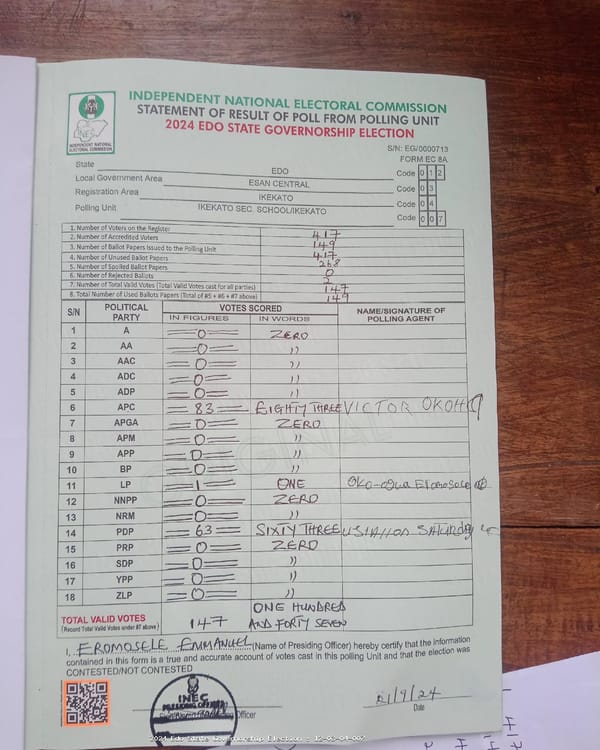 INDEPENDENT NATIONAL ELECTORAL COMMISSION
STATEMENT OF RESULT OF POLL FROM POLLING UNIT
2024 EDO STATE GOVERNORSHIP ELECTION
INEC
INDEPENDENT NATIONAL ELECTORAL COMMISSION
S/N: EG/0000713
FORM EC 8A
State EDO Code 0 1 2
Local Government Area ESAN CENTRAL Code 0 3
Registration Area IKEKATO Code 0 4
Polling Unit IKEKATO SEC. SCHOOL/IKEKATO Code 0 0 7
1. Number of Voters on the Register 417
2. Number of Accredited Voters 149
3. Number of Ballot Papers Issued to the Polling Unit 417
4. Number of Unused Ballot Papers 268
5. Number of Spoiled Ballot Papers 0
6. Number of Rejected Ballots 2
7. Number of Total Valid Votes (Total Valid Votes cast for all parties) 147
8. Total Number of Used Ballots Papers (Total of #5 + #6 + #7 above) 149
S/N POLITICAL PARTY VOTES SCORED NAME/SIGNATURE OF POLLING AGENT
IN FIGURES IN WORDS
1 A 0 ZERO
2 AA 0 "
3 AAC 0 "
4 ADC 0 "
5 ADP 0 "
6 APC 83 EIGHTY THREE VICTOR OKOH
7 APGA 0 ZERO
8 APM 0 "
9 APP 0 "
10 BP 0 "
11 LP 1 ONE Eromosele
12 NNPP 0 ZERO
13 NRM 0 "
14 PDP 63 SIXTY THREE SATURDAY
15 PRP 0 ZERO
16 SDP 0 "
17 YPP 0 "
18 ZLP 0 "
TOTAL VALID VOTES 147 ONE HUNDRED AND FORTY SEVEN
(Record Total Valid Votes under #7 above)
I, EROMOSELE EMMANUEL (Name of Presiding Officer) hereby certify that the information
contained in this form is a true and accurate account of votes cast in this polling Unit and that the election was
CONTESTED/NOT CONTESTED
INEC
PRESIDING OFFICER
Officer
21/9/24
Date
2024 Edo State Governorship Election - 12-03-04-007